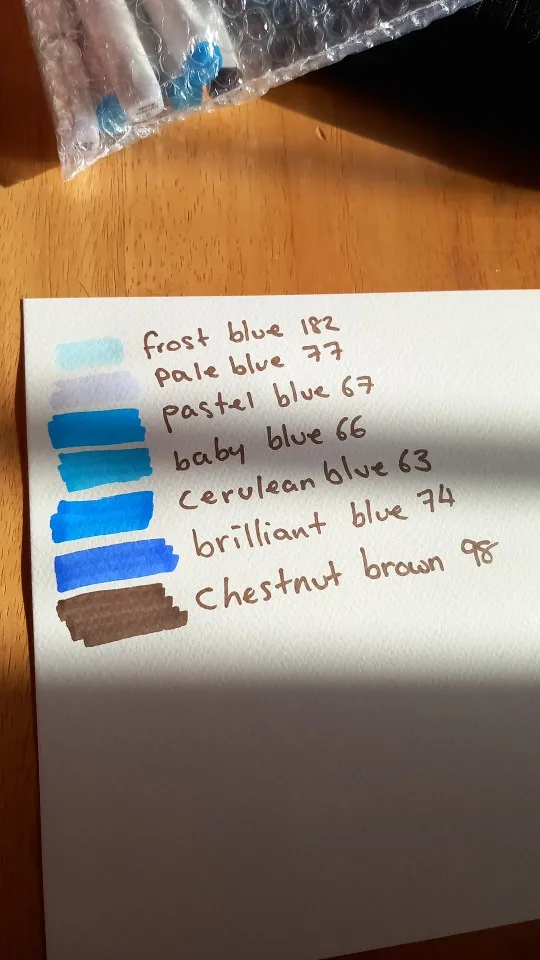 frost blue 182
pale blue 77
pastel blue 67
baby blue 66
cerulean blue 63
brilliant blue 74
Chestnut brown 98